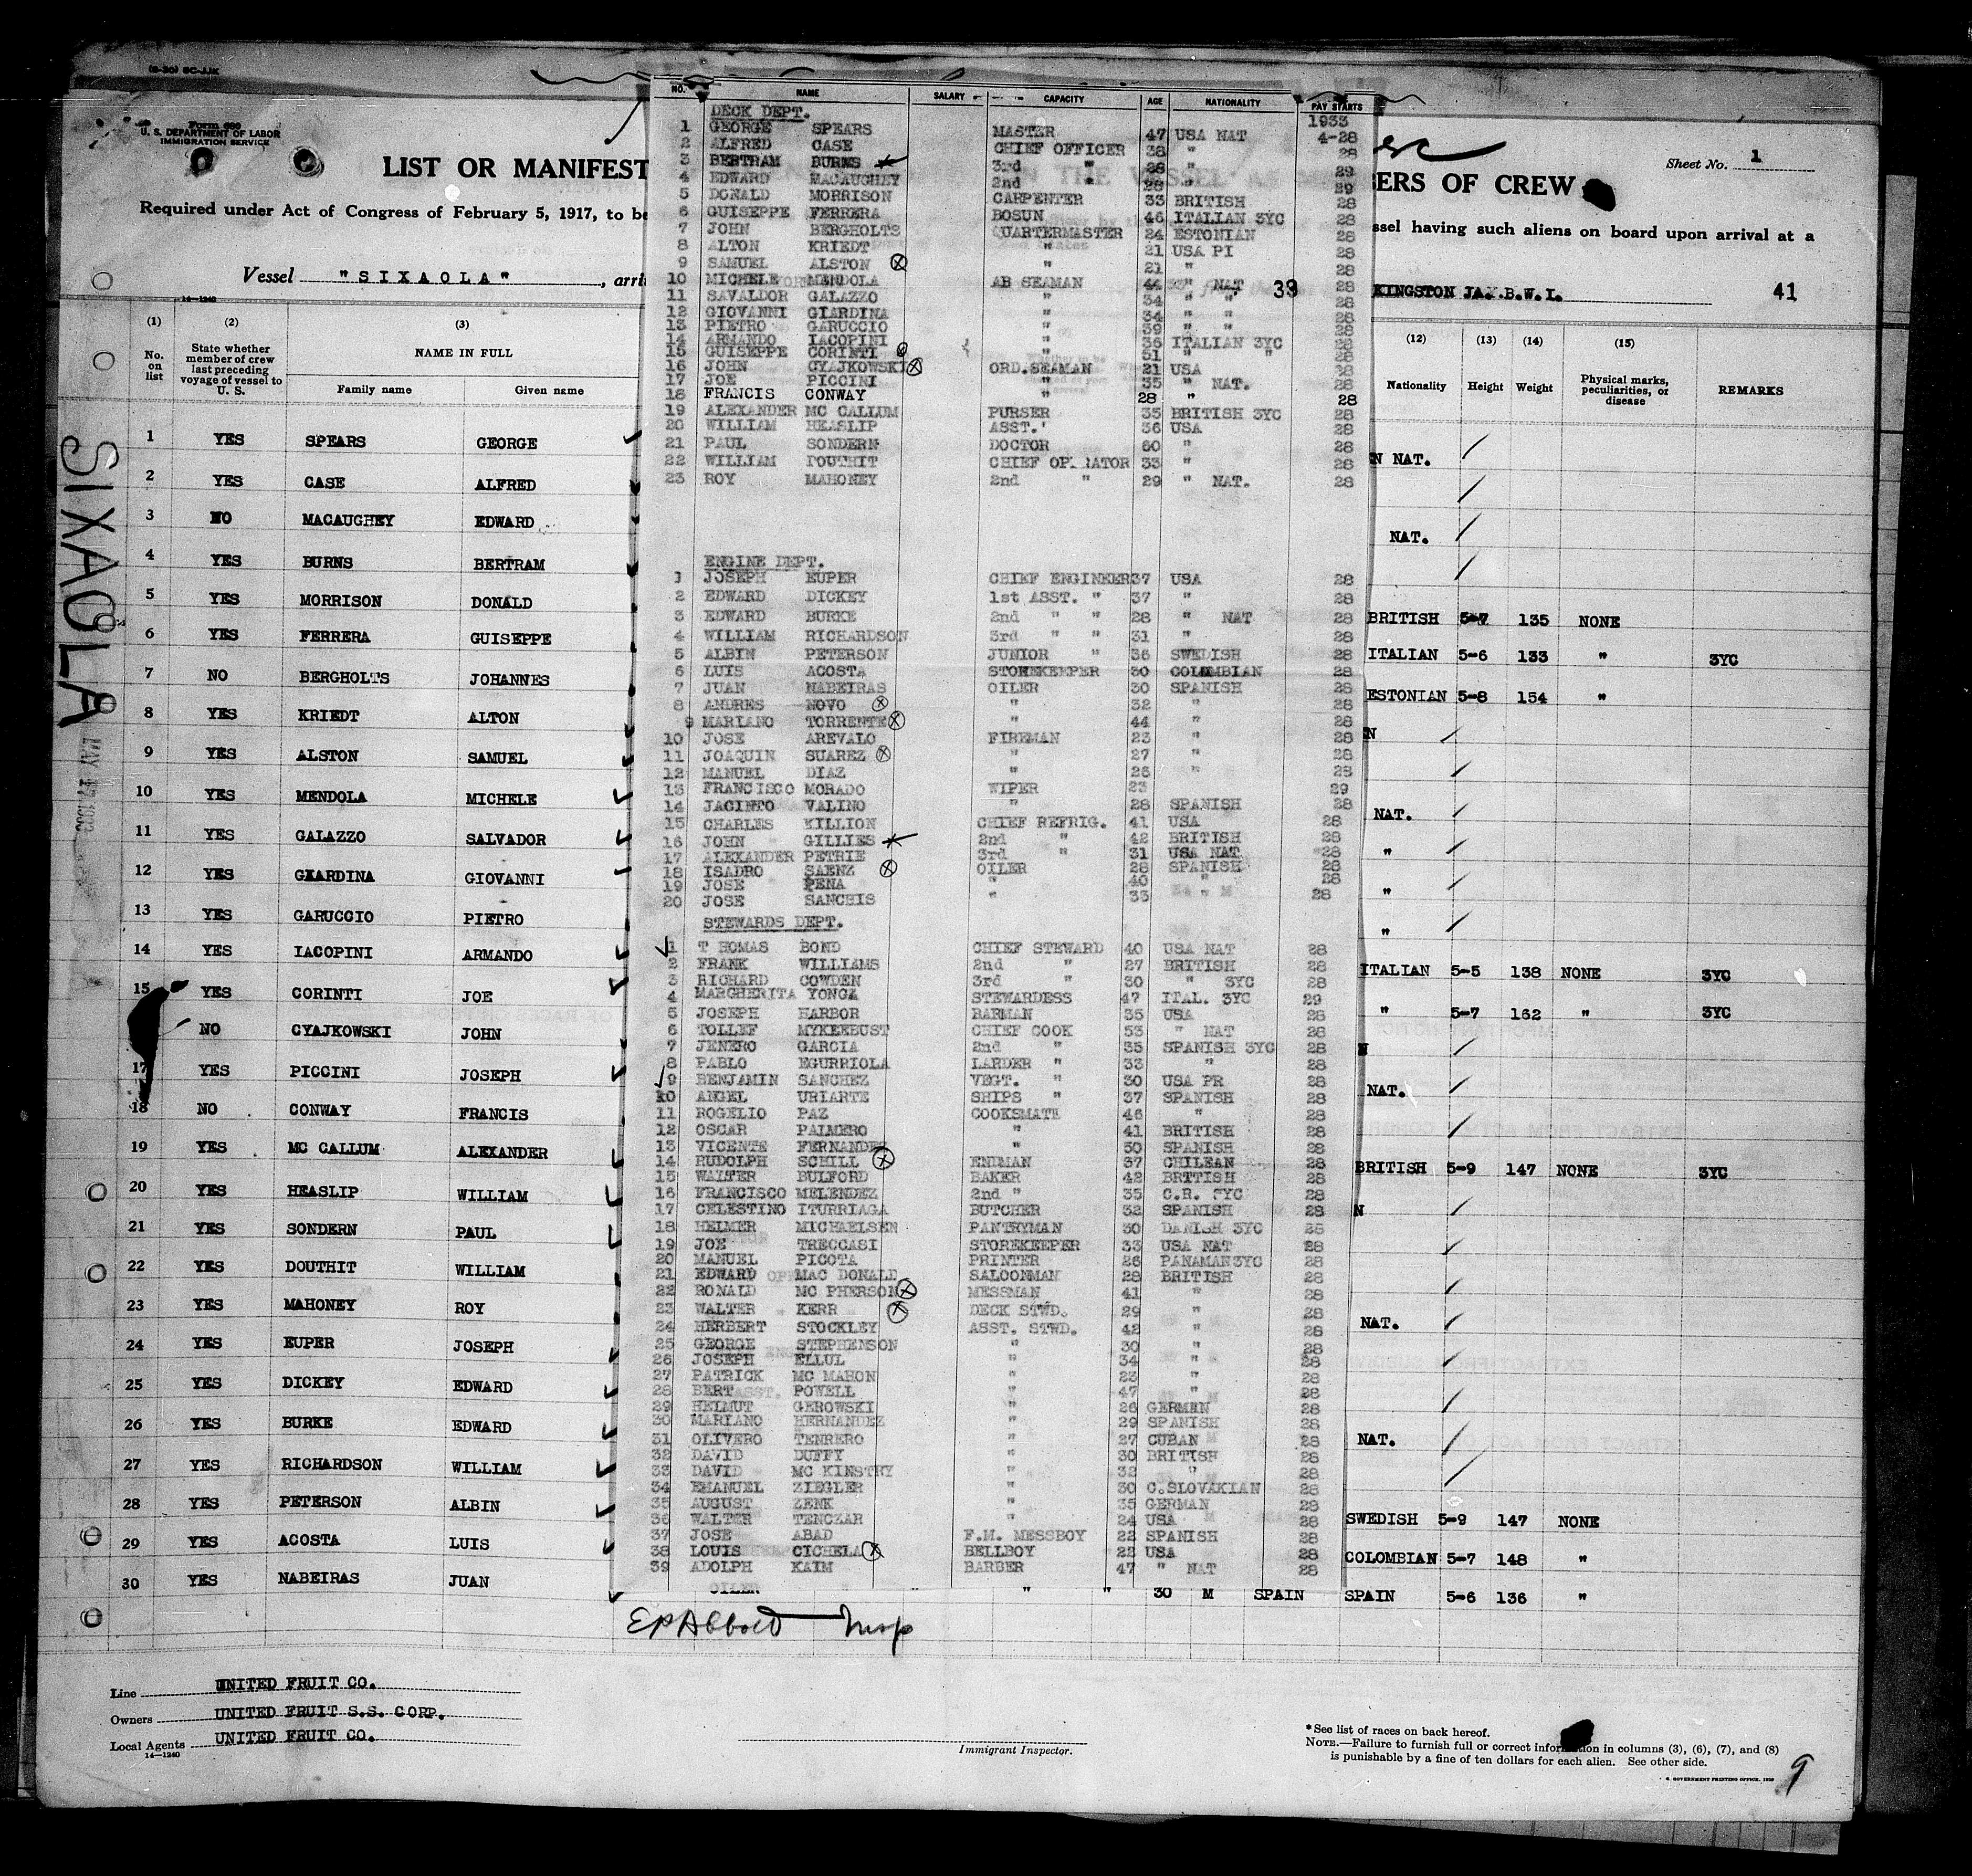 (8-30) SC-JJK
Form 680
U. S. DEPARTMENT OF LABOR
IMMIGRATION SERVICE
LIST OR MANIFEST
ERS OF CREW
Sheet No. 1
Required under Act of Congress of February 5, 1917, to be
ssel having such aliens on board upon arrival at a
Vessel "SIXAOLA", arri
KINGSTON JA.B.W.I.
39
41
SIXAOLA
14-1240
(1) (2) (3) (12) (13) (14) (15)
No. on list
State whether member of crew last preceding voyage of vessel to U. S.
NAME IN FULL
Family name Given name
Nationality Height Weight Physical marks, peculiarities, or disease REMARKS
1 YES SPEARS GEORGE N NAT.
2 YES CASE ALFRED
3 NO MACAUGHEY EDWARD NAT.
4 YES BURNS BERTRAM
5 YES MORRISON DONALD BRITISH 5-7 135 NONE
6 YES FERRERA GUISEPPE ITALIAN 5-6 133 " 3YC
7 NO BERGHOLTS JOHANNES ESTONIAN 5-8 154 "
8 YES KRIEDT ALTON N
9 YES ALSTON SAMUEL
10 YES MENDOLA MICHELE NAT.
11 YES GALAZZO SALVADOR "
12 YES GIARDINA GIOVANNI "
13 YES GARUCCIO PIETRO "
14 YES IACOPINI ARMANDO ITALIAN 5-5 138 NONE 3YC
15 YES CORINTI JOE " 5-7 162 " 3YC
NO CYAJKOWSKI JOHN N
17 YES PICCINI JOSEPH NAT.
18 NO CONWAY FRANCIS
19 YES MC CALLUM ALEXANDER BRITISH 5-9 147 NONE 3YC
20 YES HEASLIP WILLIAM N
21 YES SONDERN PAUL
22 YES DOUTHIT WILLIAM
23 YES MAHONEY ROY NAT.
24 YES EUPER JOSEPH
25 YES DICKEY EDWARD
26 YES BURKE EDWARD NAT.
27 YES RICHARDSON WILLIAM
28 YES PETERSON ALBIN SWEDISH 5-9 147 NONE
29 YES ACOSTA LUIS COLOMBIAN 5-7 148 "
30 YES NABEIRAS JUAN OILER " " 30 M SPAIN SPAIN 5-6 136 "
NO. NAME SALARY CAPACITY AGE NATIONALITY PAY STARTS
DECK DEPT. 1933
1 GEORGE SPEARS MASTER 47 USA NAT 4-28
2 ALFRED CASE CHIEF OFFICER 38 " 28
3 BERTRAM BURNS 3rd " 28 " 29
4 EDWARD MACAUGHEY 2nd " 28 " 29
5 DONALD MORRISON CARPENTER 33 BRITISH 28
6 GUISEPPE FERRERA BOSUN 46 ITALIAN 3YC 28
7 JOHN BERGHOLTS QUARTERMASTER 24 ESTONIAN 28
8 ALTON KRIEDT " 21 USA PI 28
9 SAMUEL ALSTON " 21 " 28
10 MICHELE MENDOLA AB SEAMAN 44 " NAT 28
11 SAVALDOR GALAZZO " 34 " " 28
12 GIOVANNI GIARDINA " 34 " " 28
13 PIETRO GARUCCIO " 39 " " 28
14 ARMANDO IACOPINI " 36 ITALIAN 3YC 28
15 GUISEPPE CORINTI " 51 " " 28
16 JOHN CYAJKOWSKI ORD.SEAMAN 21 USA 28
17 JOE PICCINI " 35 " NAT. 28
18 FRANCIS CONWAY " 28 " 28
19 ALEXANDER MC CALLUM PURSER 35 BRITISH 3YC 28
20 WILLIAM HEASLIP ASST. 36 USA 28
21 PAUL SONDERN DOCTOR 60 " 28
22 WILLIAM DOUTHIT CHIEF OPERATOR 33 " 28
23 ROY MAHONEY 2nd " 29 " NAT. 28
ENGINE DEPT.
1 JOSEPH EUPER CHIEF ENGINEER 37 USA 28
2 EDWARD DICKEY 1st ASST. " 37 " 28
3 EDWARD BURKE 2nd " " 28 " NAT 28
4 WILLIAM RICHARDSON 3rd " " 31 " 28
5 ALBIN PETERSON JUNIOR " 36 SWEDISH 28
6 LUIS ACOSTA STOREKEEPER 30 COLOMBIAN 28
7 JUAN NABEIRAS OILER 30 SPANISH 28
8 ANDRES NOVO " 32 " 28
9 MARIANO TORRENTE " 44 " 28
10 JOSE AREVALO FIREMAN 23 " 28
11 JOAQUIN SUAREZ " 27 " 28
12 MANUEL DIAZ " 26 " 28
13 FRANCISCO MORADO WIPER 23 29
14 JACINTO VALINO " 28 SPANISH 28
15 CHARLES KILLION CHIEF REFRIG. 41 USA 28
16 JOHN GILLIES 2nd " 42 BRITISH 28
17 ALEXANDER PETRIE 3rd " 31 USA NAT 28
18 ISADRO SAENZ OILER 28 SPANISH 28
19 JOSE PENA " 40 " 28
20 JOSE SANCHIS " 33 " 28
STEWARDS DEPT.
1 THOMAS BOND CHIEF STEWARD 40 USA NAT 28
2 FRANK WILLIAMS 2nd " 27 BRITISH 28
3 RICHARD COWDEN 3rd " 30 " 3YC 28
4 MARGHERITA YONCA STEWARDESS 47 ITAL. 3YC 29
5 JOSEPH HARBOR BARMAN 35 USA 28
6 TOLLEF MYKLEBUST CHIEF COOK 53 " NAT 28
7 JENERO GARCIA 2nd " 35 SPANISH 3YC 28
8 PABLO EGURRIOLA LARDER " 33 " 28
9 BENJAMIN SANCHEZ VEGT. " 30 USA PR 28
10 ANGEL URIARTE SHIPS " 37 SPANISH 28
11 ROGELIO PAZ COOKSMATE 46 " 28
12 OSCAR PALMERO " 41 BRITISH 28
13 VICENTE FERNANDEZ " 50 SPANISH 28
14 RUDOLPH SCHILL ENIMAN 37 CHILEAN 28
15 WALTER BULFORD BAKER 42 BRITISH 28
16 FRANCISCO MELENDEZ 2nd " 35 C.R. 3YC 28
17 CELESTINO ITURRIAGA BUTCHER 32 SPANISH 28
18 HELMER MICHAELSEN PANTRYMAN 30 DANISH 3YC 28
19 JOE TRECCASI STOREKEEPER 33 USA NAT 28
20 MANUEL PICOTA PRINTER 26 PANAMAN3YC 28
21 EDWARD MAC DONALD SALOONMAN 28 BRITISH 28
22 RONALD MC PHERSON MESSMAN 41 " 28
23 WALTER KERR DECK STWD. 29 " 28
24 HERBERT STOCKLEY ASST. STWD. 42 " 28
25 GEORGE STEPHENSON " 30 " 28
26 JOSEPH ELLUL " 34 " 28
27 PATRICK MC MAHON " 23 " 28
28 BERT POWELL " 47 " 28
29 HELMUT GEROWSKI " 26 GERMAN 28
30 MARIANO HERNANDEZ " 29 SPANISH 28
31 OLIVERO TENRERO " 27 CUBAN 28
32 DAVID DUFFY " 30 BRITISH 28
33 DAVID MC KINSTRY " 32 " 28
34 EMANUEL ZIEGLER " 30 C.SLOVAKIAN 28
35 AUGUST ZENK " 35 GERMAN 28
36 WALTER TENCZAR " 24 USA 28
37 JOSE ABAD F.M. MESSBOY 22 SPANISH 28
38 LOUIS CICHELA BELLBOY 22 USA 28
39 ADOLPH KAIM BARBER 47 " NAT 28
EP Abbott Insp
Line UNITED FRUIT CO.
Owners UNITED FRUIT S.S. CORP.
Local Agents UNITED FRUIT CO.
14-1240
Immigrant Inspector.
*See list of races on back hereof.
NOTE.—Failure to furnish full or correct information in columns (3), (6), (7), and (8)
is punishable by a fine of ten dollars for each alien. See other side.
GOVERNMENT PRINTING OFFICE
9